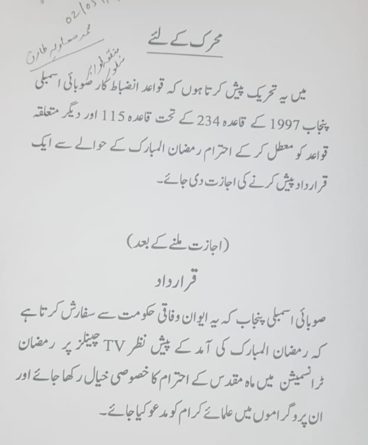 02/03/
محمد معاویہ طارق
منظور
محرک کے لئے
میں یہ تحریک پیش کرتا ہوں کہ قواعد انضباط کار صوبائی اسمبلی
پنجاب 1997 کے قاعدہ 234 کے تحت قاعدہ 115 اور دیگر متعلقہ
قواعد کو معطل کر کے احترام رمضان المبارک کے حوالے سے ایک
قرارداد پیش کرنے کی اجازت دی جائے۔
(اجازت ملنے کے بعد)
قرارداد
صوبائی اسمبلی پنجاب کہ یہ ایوان وفاقی حکومت سے سفارش کرتا ہے
کہ رمضان المبارک کی آمد کے پیش نظر TV چینلز پر رمضان
ٹرانسمیشن میں ماہ مقدس کے احترام کا خصوصی خیال رکھا جائے اور
ان پروگراموں میں علمائے کرام کو مدعو کیا جائے۔